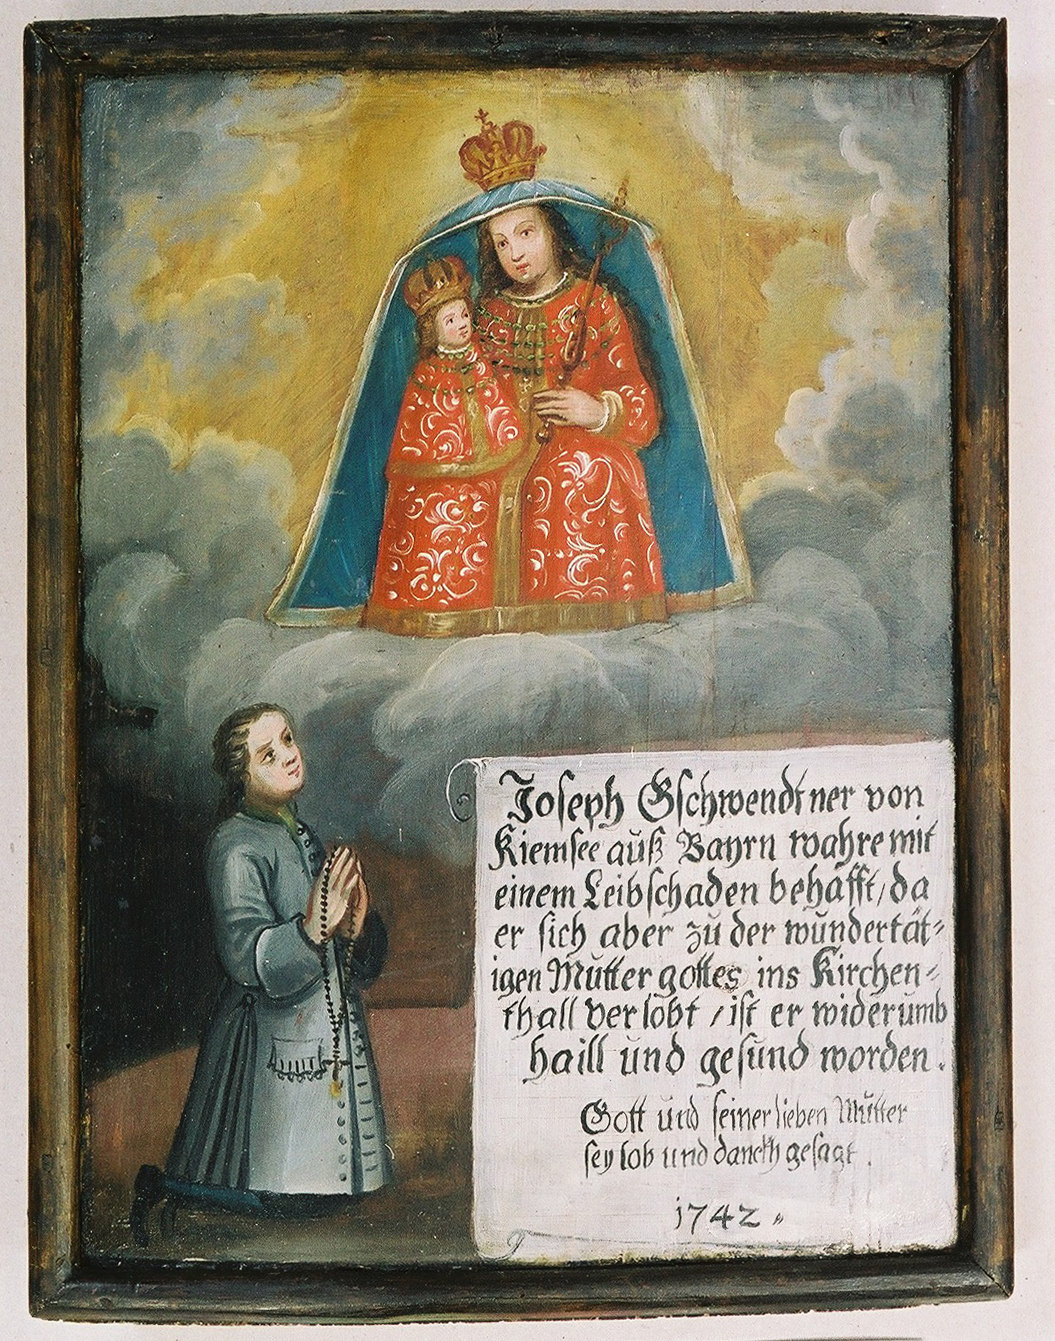 Joseph Gschwendtner von
Kiemsee aŭß Bayrn wahre mit
einem Leibschaden behäfft/ da
er sich aber zŭ der wŭndertät-
igen Mŭtter gottes ins Kirchen-
thall verlobt / ist er widerŭmb
haill ŭnd gesŭnd worden.
Gott ŭnd seiner lieben Mŭtter
sey lob ŭnd danckh gesagt.
1742